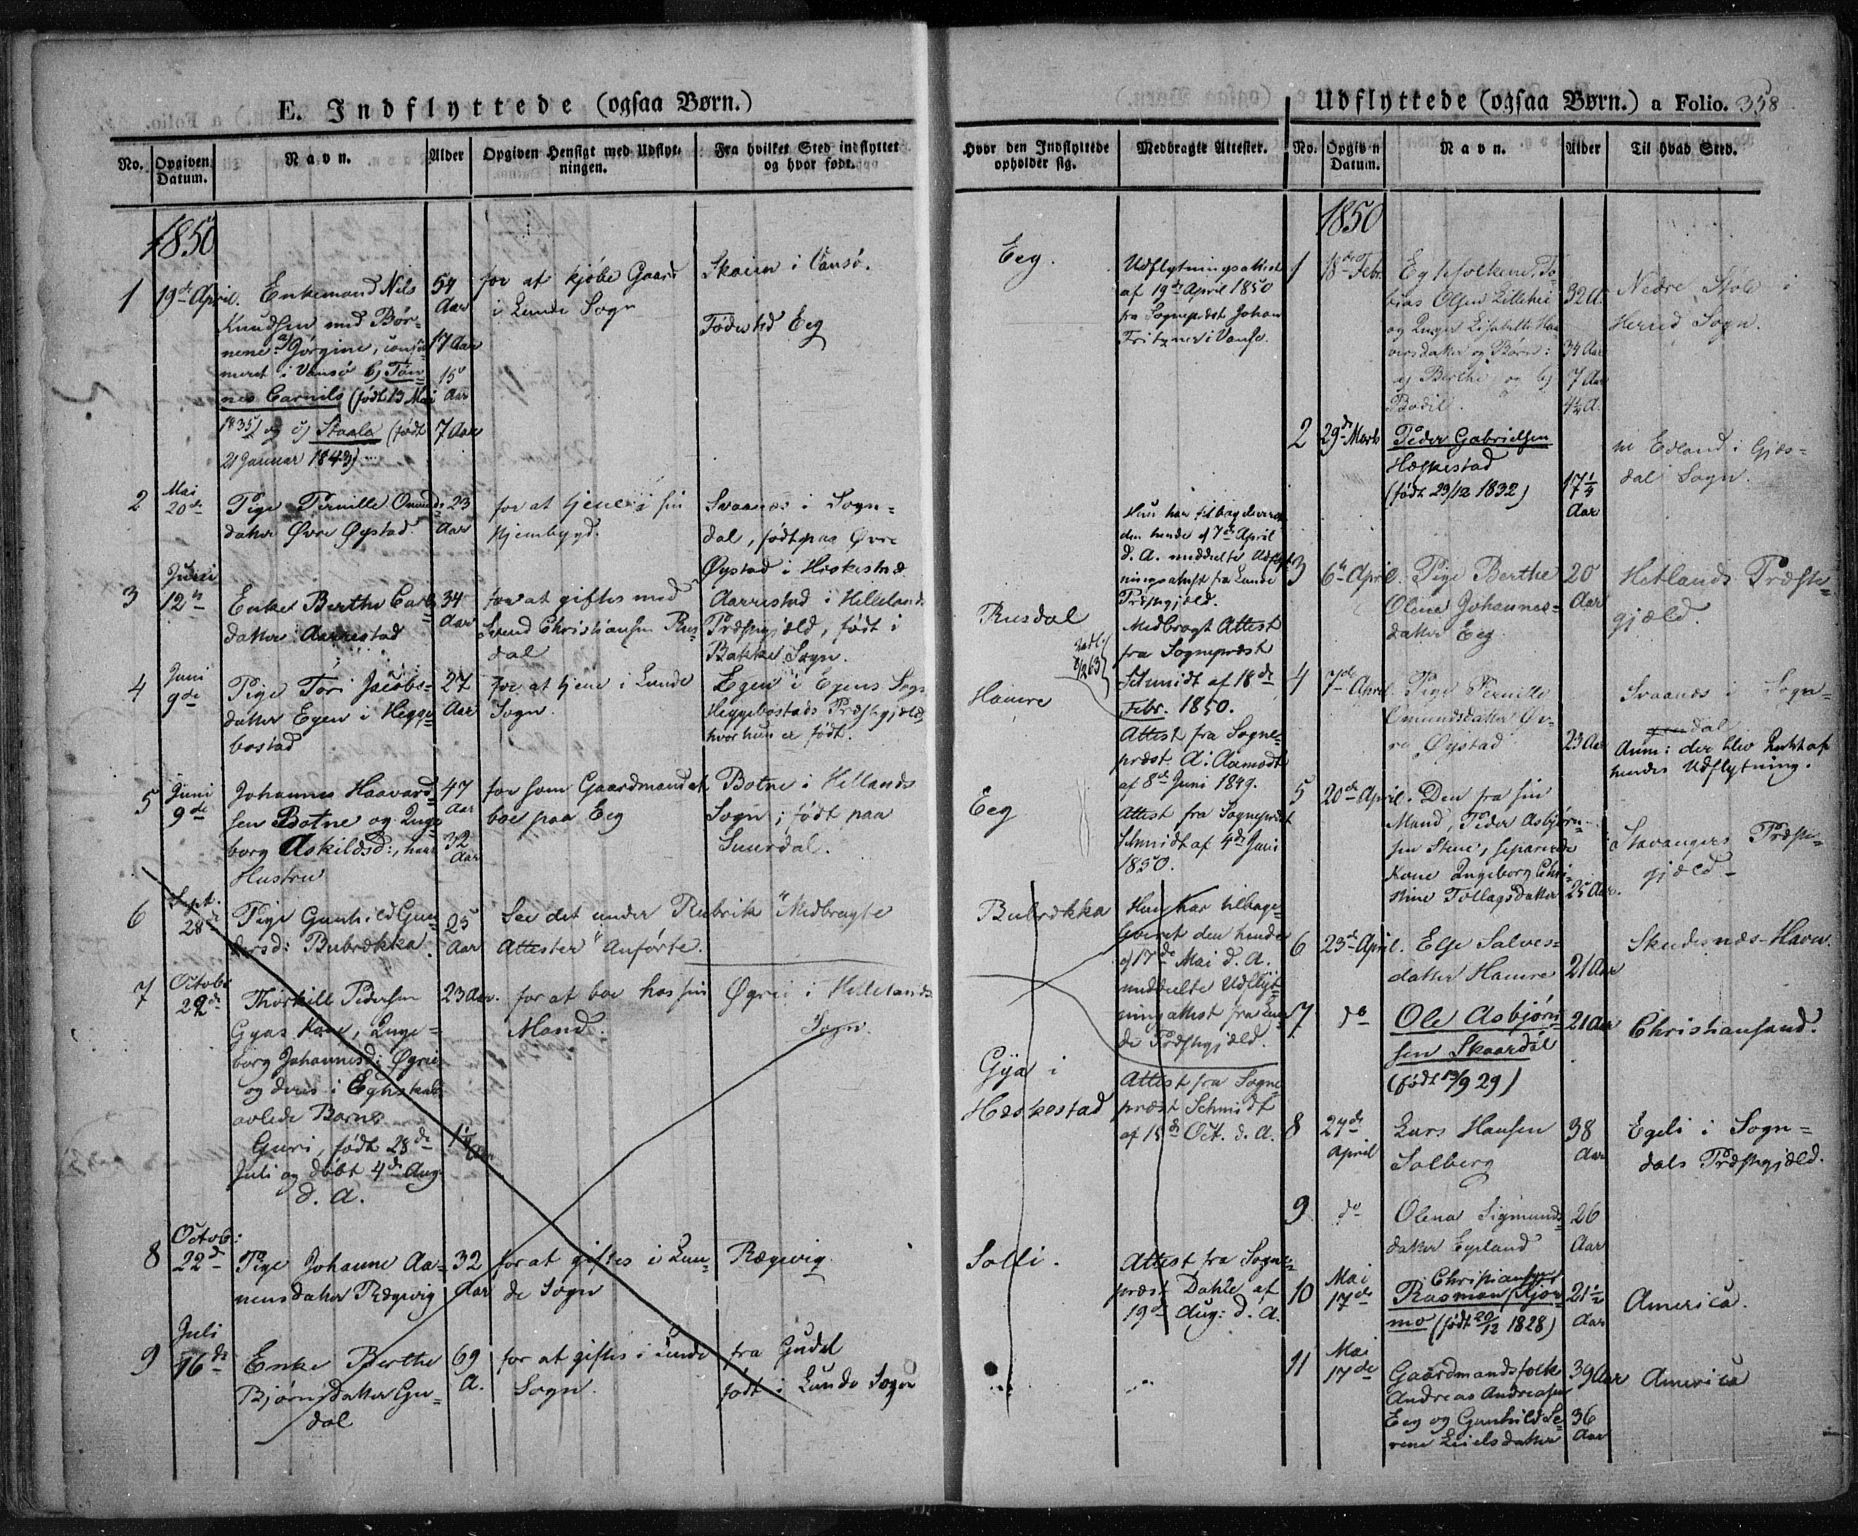 E. Indflyttede (ogsaa Børn.)
No.
Opgiven Datum.
Navn.
Alder
Opgiven Hensigt med Udflyt-
ningen.
Fra hvilket Sted indflyttet
og hvor født.
1850
1
19de April.
Enkemand Nils
Knudsen med Bør-
nene a) Jørgine, confir
meret i Vansø b) Tøn-
nes Cornils (født 13 Mai
1835) og c) Staale (født
21 Januar 1843)
54
Aar
17 Aar
15
Aar
7 Aar
for at kjøbe Gaard
i Lunde Sogn
i Vansø.
Fødested Eeg
2
Mai
20de
Pige Pernille Omunds-
datter Øvre Øystad
23
Aar
for at tjene i sin
Hjembygd.
Svaanes i Sogn-
dal, født paa Øvre
Øystad i Heskestad
3
Juni
12te
Enke Berthe Carls
datter Aarrestad
34
Aar
for at giftes med
Svend Christiansen Rus-
dal
Aarrestad i Hellelands
Præstegjæld, født i
Bakke Sogn.
4
Juni
9de
Pige Tori Jacobs-
datter Egen i Hegge
bostad
27
Aar
for at tjene i Lunde
Sogn.
Egen i Egens Sogn
Heggebostads Præstegjæld,
hvor hun er født.
5
Juni
9de
Johannes Haavard-
sen Botne og Inge
borg Askildsd:, hans
Hustru
47
Aar
32
Aar
for som Gaardmand at
boe paa Eeg
Botne i Hellands
Sogn; født paa
6
Sept.
28de
Pige Gunhild Gun
dersd: Bubrokka
25
Aar
See det under Rubrik "Medbragte
Attester" Anførte.
7
Octobr
22de
Thorkille Pedersen
Gyas Kone, Inge-
borg Johannesd: Øgrei
og deres i Egteskab
avlede Barn
Guri, født 28de
Juli og døbt 4de Aug.
d. A.
23 Aar.
for at boe hos sin
Mand.
Øgrei i Hellelands
Sogn.
8
Octob:
22de
Pige Johanne Aa-
nensdatter Rægevig
32
Aar
for at giftes i Lun-
de Sogn
Rægevig
9
Juli
16de
Enke Berthe
Bjørnsdatter Gu-
dal
69
A.
for at giftes i Lunde
Sogn.
fra Gudal
født i Lunde Sogn
Udflyttede (ogsaa Børn.) a Folio. 358
Hvor den Indflyttede
opholder sig.
Medbragte Attester.
No.
Opgiven
Datum.
Navn.
Alder
Til hvad Sted.
1850
Eeg.
Udflytningsattest
af 19de April 1850
fra Sognepræst Johan
Fritzner i Vanse.
Hun har tilbageleveret
den hende af 7de April
d. A. meddelte Udflyt-
ningsattest fra Lunde
Præstegjæld.
Rusdal
Medbragt Attest
fra Sognepræst
Schmidt af 18de
Febr. 1850.
Hamre
Attest fra Sogne-
præst A. Aamodt
af 8de Juni 1849.
Eeg
Attest fra Sognepræst
Schmidt af 4de Juni
1850.
Bubrokka
Hun har tilbage-
leveret den hende
af 17de Mai d. A.
meddelte Udflyt-
ningsattest fra Lun
de Præstegjæld.
Gya i
Heskestad
Attest fra Sogne
præst Schmidt
af 15de Oct. d. A.
Solli.
Attest fra Sogne-
præst Dahle af
19de Aug: d. A.
1
18de Febr.
Egtefolkene To-
bias Olsen Lillehei
og Inger Elisabeth
og Børn:
a) Berthe og b)
Bodil.
32 A.
34 Aar
7 Aar
4½ A.
Nedre Støle i
Herred Sogn.
2
29de Marts
Peder Gabrielsen
Heskestad
(født 23/12 1832)
17¼
Aar
til Edland i Gjes-
dal Sogn.
3
6te April.
Pige Berthe
Olene Johannes-
datter Eeg
20
Aar
Hetlands Præste-
gjæld.
4
7de April
Pige Pernille
Omundsdatter Øv-
re Øystad
23 Aar
Svaanes i Sogn-
dal
Anm: der blev Intet af
hendes Udflytning.
5
20de April.
Den fra sin
Mand, Peder Asbjørn-
sen Stene, separerede
Kone Ingeborg Chri-
stine Tollagsdatter
25 Aar
Stavangers Præste-
gjæld-
6
23de April.
Else Salves-
datter Hamre
21 Aar
Skudesnæs-Havn
7
do
Ole Asbjørn-
sen Skaardal
(født 13/9 29)
21 Aar
Christiansand.
8
27de
April
Lars Hansen
Solberg
38
Aar
Egeli i Sogn-
dals Præstegjæld.
9
do
Olena Sigmunds-
datter Egeland
26
Aar
10
Mai
17de
Christiansen
Rasmus Kjør-
mo (født 20/12 1828)
21½
Aar
America.
11
Mai
17de
Gaardmandsfolk
Andreas Andreasen
Eeg og Gunhild Se-
rine Leielsdatter
39 Aar
36
Aar
America